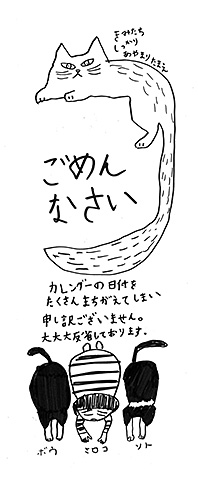 きみたち
しっかり
あやまりたまえ
ごめん
なさい
カレンダーの日付を
たくさんまちがえてしまい
申し訳ございません。
大大大反省しております。
ボウ ミロコ ソト